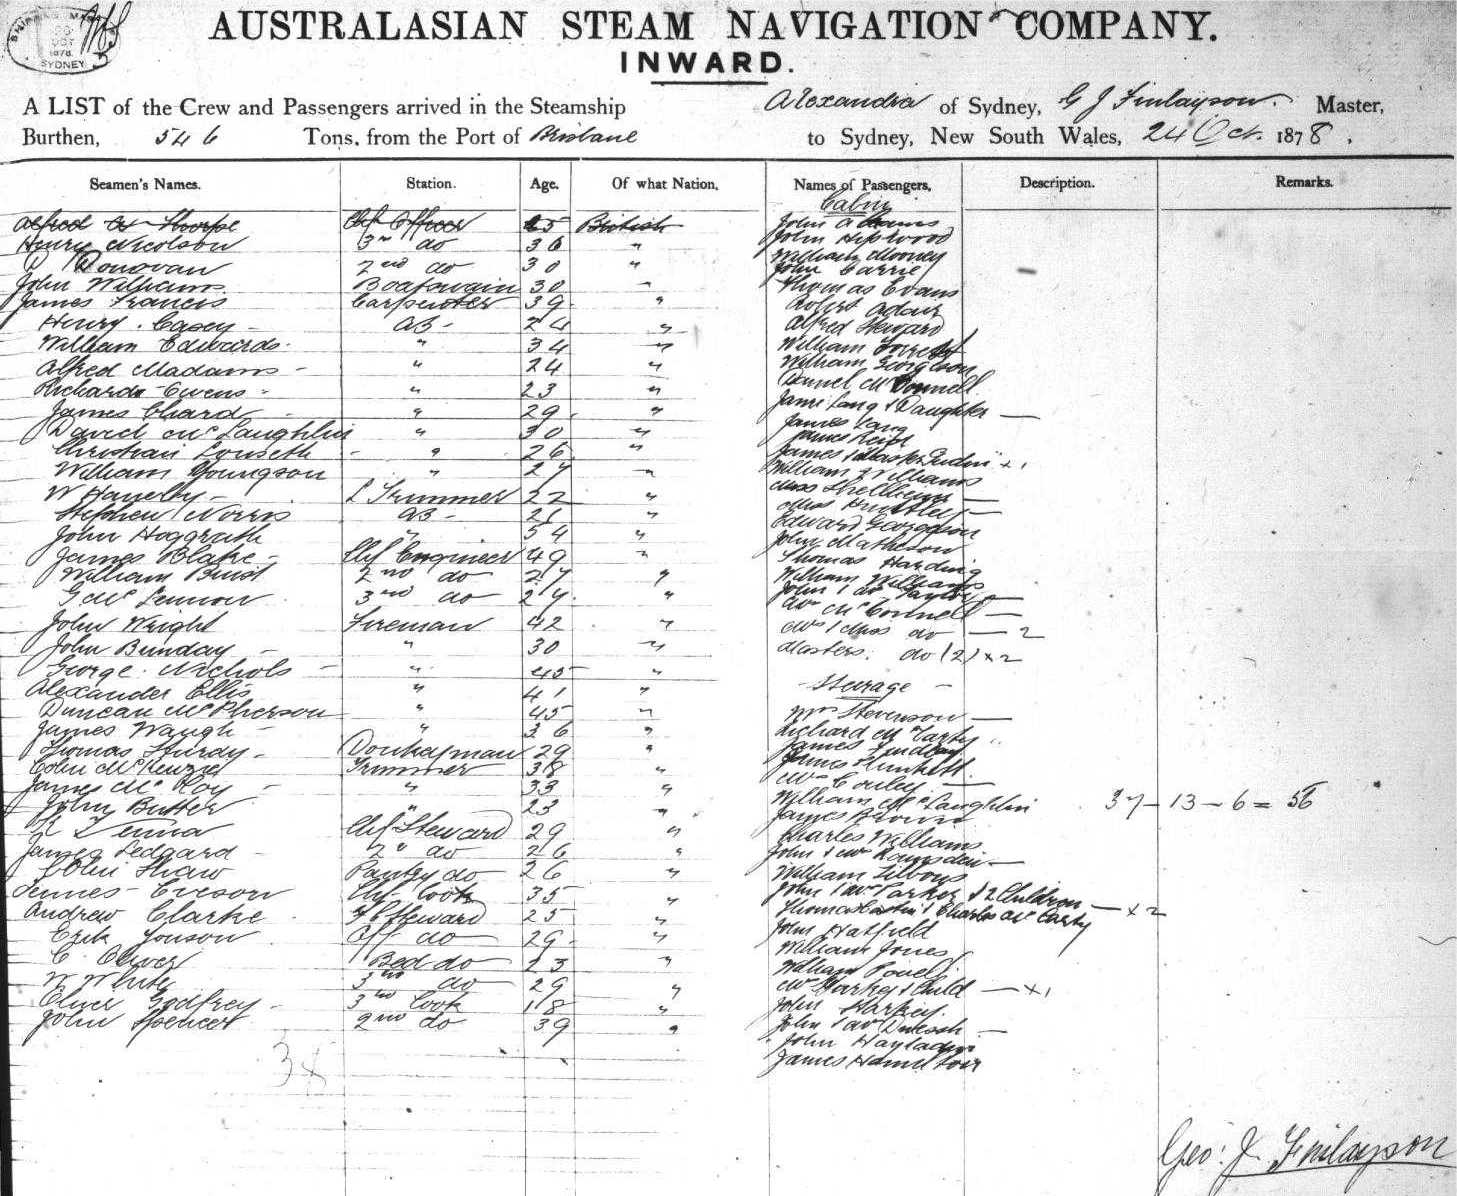 SHIPPING MASTER
OCT
1878
SYDNEY
AUSTRALASIAN STEAM NAVIGATION COMPANY.
INWARD.
A LIST of the Crew and Passengers arrived in the Steamship Alexandra of Sydney, G J Finlayson. Master,
Burthen, 546 Tons, from the Port of Brisbane to Sydney, New South Wales, 24 Oct. 1878.
Seamen's Names. Station. Age. Of what Nation. Names of Passengers, Description. Remarks.
Cabin
Alfred Thorpe Chf Officer British
Henry Nicolson 3rd do 36 "
D Donovan 2nd do 30 "
John Williams Boatswain 30 "
James Francis Carpenter 39 "
Henry Casey - AB - 24 "
William Edwards " 34 "
Alfred Madams - " 24 "
Richard Owens - " 23 "
James Chard " 29 "
David McLaughlin " 30 "
Christian - " 26 "
William Youngson " 27 "
W - L Trimmer 22 "
Stephen Norris AB - 21 "
John Hoggrath " 54 "
James Blake - Chf Engineer 49 "
William 2nd do 27 "
G McLennon 3rd do 27 "
John Wright Fireman 42 "
John Bunday - " 30 "
George Nichols - " 45 "
Alexander Ellis " 41 "
Duncan McPherson " 45 "
James Waugh - " "
Thomas Sturdy - Donkeyman 29 "
Colin McKenzie Trimmer 38 "
James McKoy - " 33 "
John Butter " 23 "
Chf Steward 29 "
James Ledgard - 2nd do 26 "
John Shaw Pantry do 26 "
Eveson Chf Cook 35 "
Andrew Clarke Steward 25 "
Erik Jonson do 29 "
C. Oliver Bed do 23 "
W White 3rd do 29 "
Oliver Godfrey - 3rd Cook 18 "
John Spencer 2nd do 39 "
38
John Adams
John Hipwood
William Mooney
John Carrie
Thomas Evans
Robert Adair
Alfred Steward
William Forrest
William Georgeson
Daniel McConnell
Jane Lang & Daughter —
James Lang
James Reid
James & Master × 1
William Williams
Miss —
Mrs —
Edward Georgeson
John Matheson
Thomas Harding
William Williams
John & Mrs Taylor —
Mrs McConnell —
Mrs & Miss do — 2
Masters do (2) × 2
- Steerage -
Mrs Stevenson —
Richard McCarty
James Findlay
James Plunkett
Mrs —
William McLaughlin 37 - 13 - 6 = 56
James Brown
Charles Williams
John & Mrs Ramsden —
William
John & Mrs Parker & 2 Children — × 2
Thomas & Charles McCarty
John Hatfield
William Jones
William Powell
Mrs Harkey & Child — × 1
John Harkey
John & Mrs —
John
James Hamilton
Geo: J. Finlayson